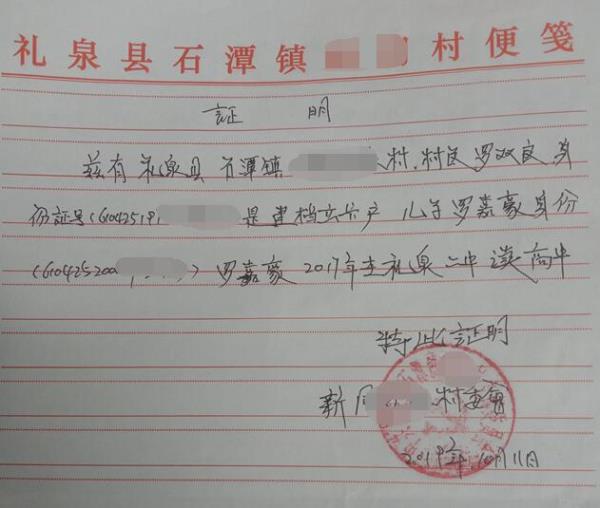 礼泉县石潭镇 村便笺
証 明
兹有礼泉县石潭镇 村,村民罗双良,身
份証号(610425191 是建档立卡户 儿子罗嘉豪身份
(61042520 ) 罗嘉豪 2017年在礼泉二中读高中
特此証明
新 村委会
2019年10月11日